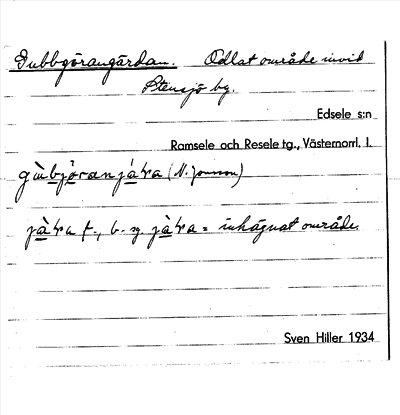 Gubbgörangärdan. Odlat område invid
Stensjö by.
Edsele s:n
Ramsele och Resele tg., Västernorrl. l.
gùbjöranjàʳa (N. Jonsson)
jàʳa f., b. sg. jàʳa = inhägnat område.
Sven Hiller 1934